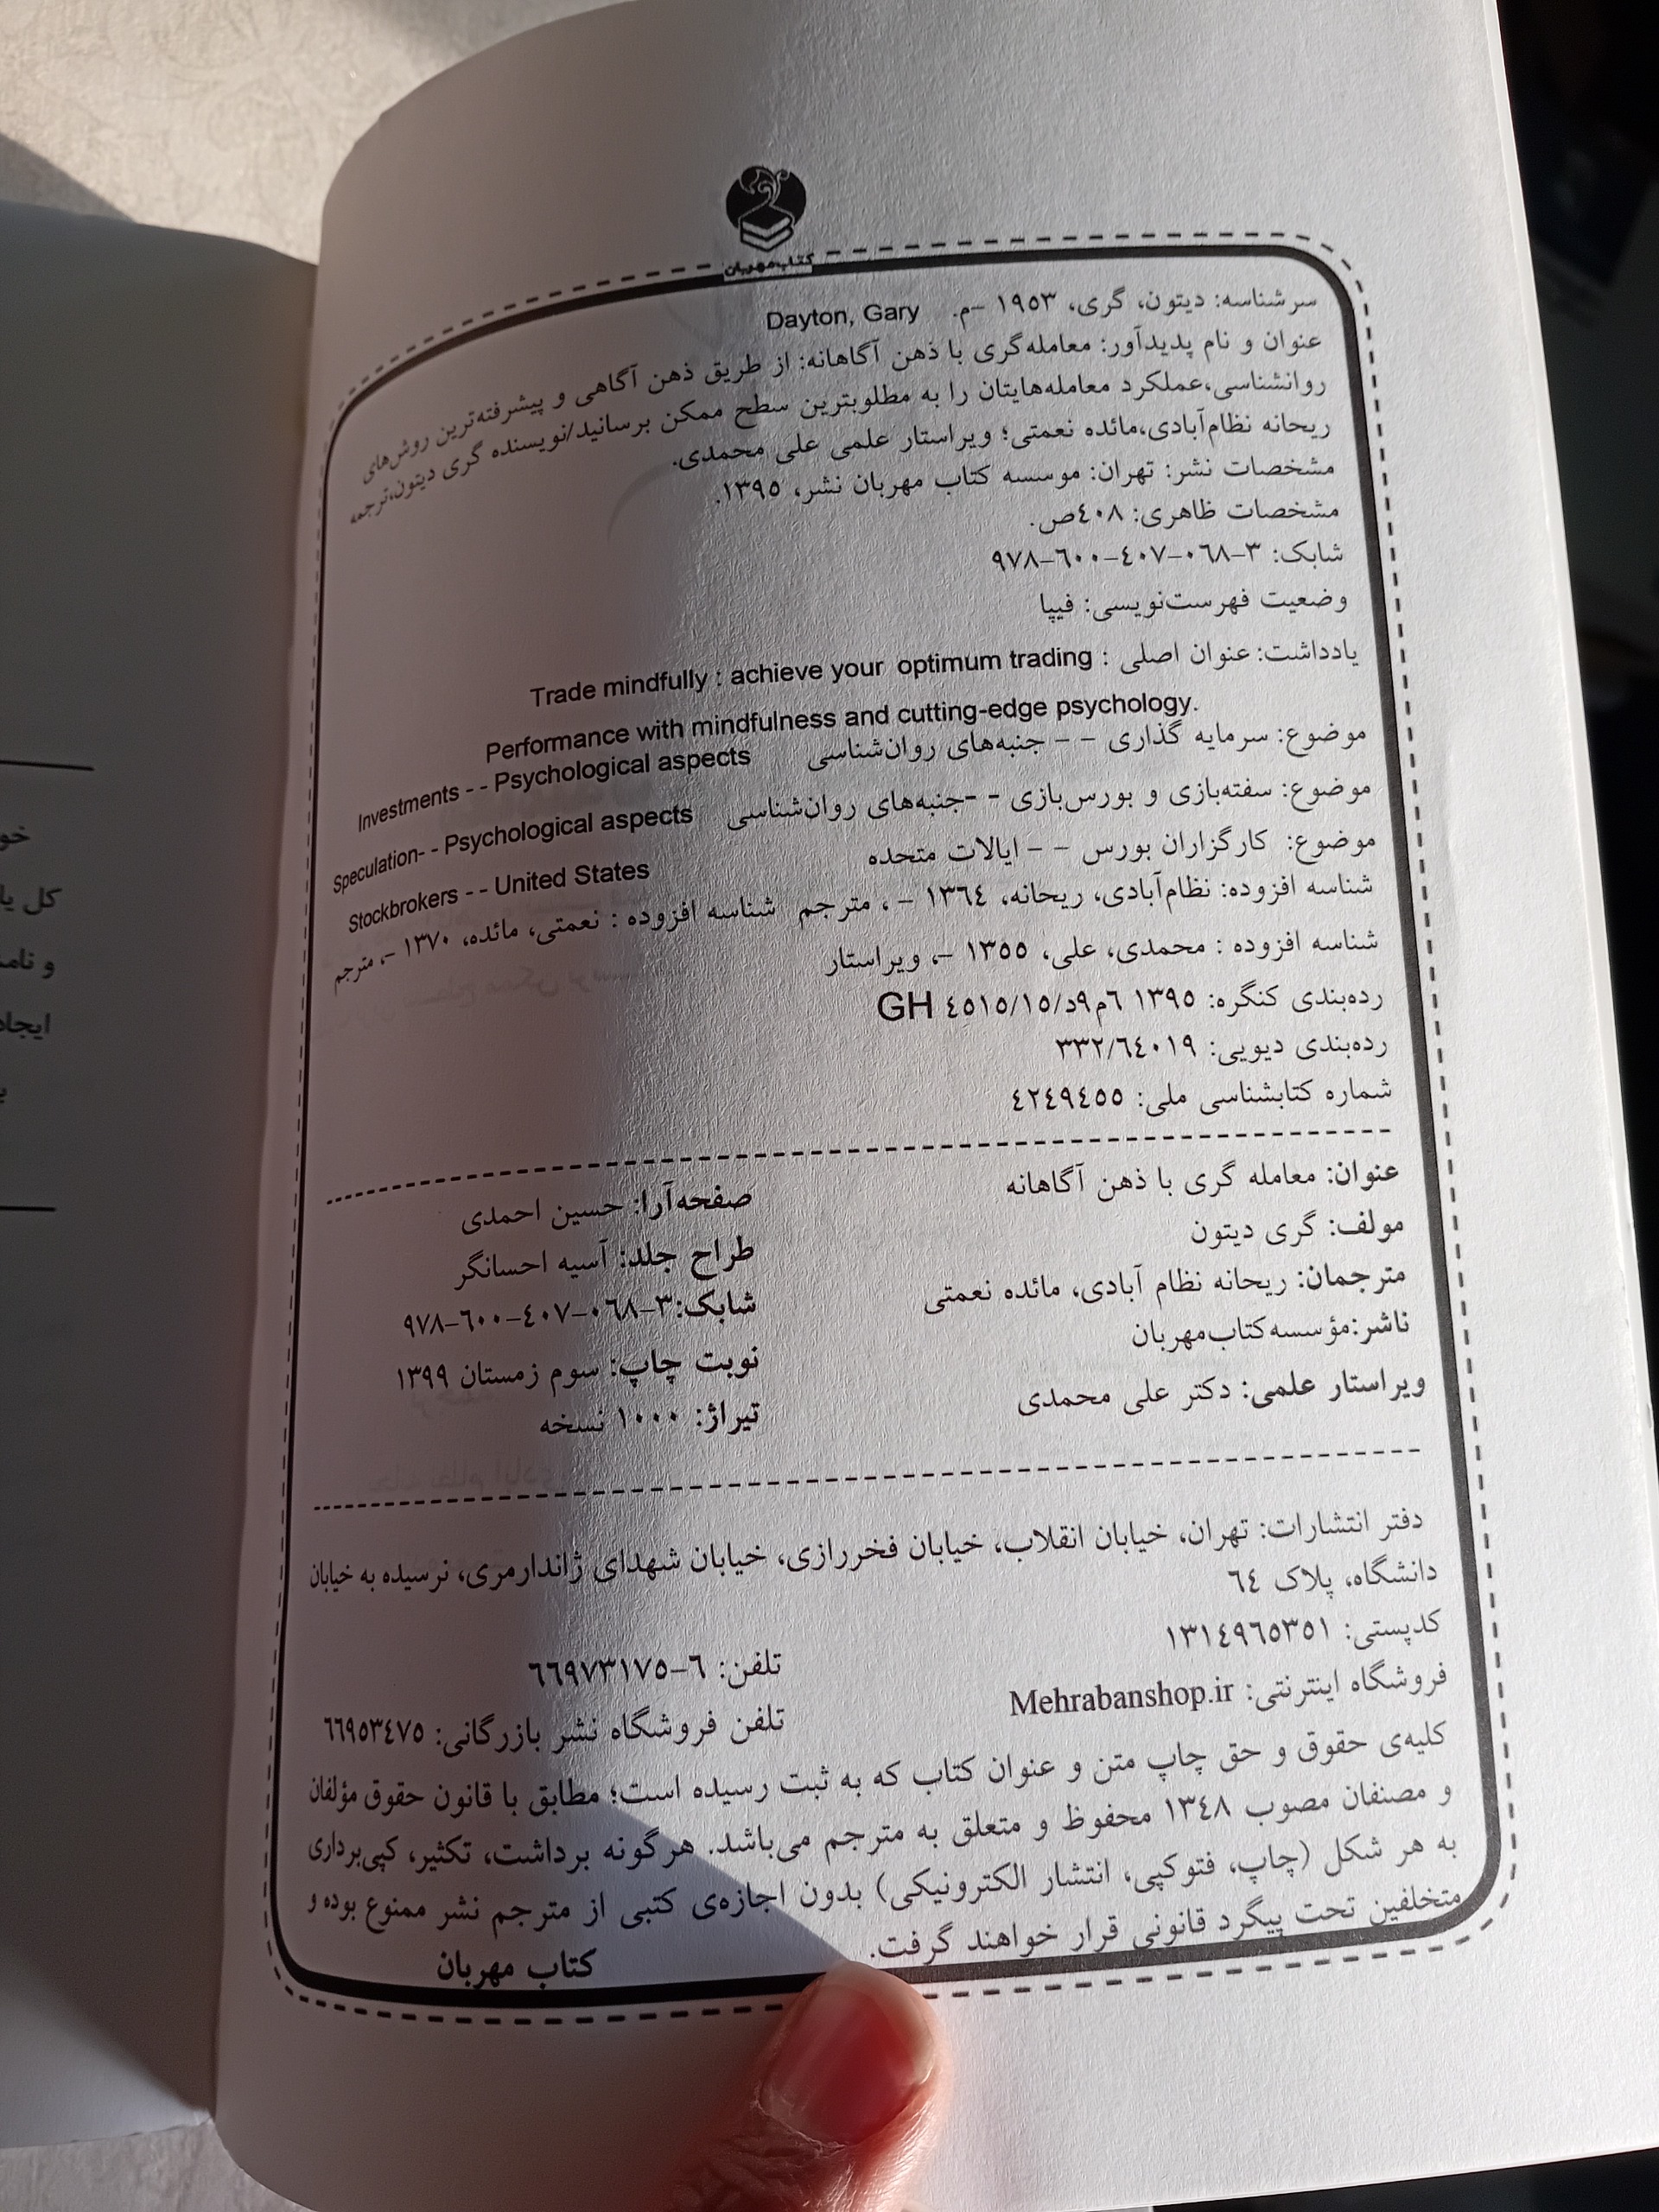 کتاب مهربان
سرشناسه: دیتون، گری، ۱۹۵۳ -م. Dayton, Gary
عنوان و نام پدیدآور: معامله‌گری با ذهن آگاهانه: از طریق ذهن آگاهی و پیشرفته‌ترین روش‌های
روانشناسی،عملکرد معامله‌هایتان را به مطلوبترین سطح ممکن برسانید/نویسنده گری دیتون،ترجمه
ریحانه نظام‌آبادی،مائده نعمتی؛ ویراستار علمی علی محمدی.
مشخصات نشر: تهران: موسسه کتاب مهربان نشر، ۱۳۹۵.
مشخصات ظاهری: ٤٠٨ص.
شابک: ۳-۰٦۸-٤۰۷-٦۰۰-۹۷۸
وضعیت فهرست‌نویسی: فیپا
یادداشت: عنوان اصلی : Trade mindfully : achieve your optimum trading
Performance with mindfulness and cutting-edge psychology.
موضوع: سرمایه گذاری - - جنبه‌های روان‌شناسی Investments - - Psychological aspects
موضوع: سفته‌بازی و بورس‌بازی - -جنبه‌های روان‌شناسی Speculation- - Psychological aspects
موضوع: کارگزاران بورس - - ایالات متحده Stockbrokers - - United States
شناسه افزوده: نظام‌آبادی، ریحانه، ۱۳٦٤ - ، مترجم شناسه افزوده : نعمتی، مائده، ۱۳۷۰ -، مترجم
شناسه افزوده : محمدی، علی، ۱۳۵۵ -، ویراستار
رده‌بندی کنگره: ۱۳۹۵ ٦م۹د/۱۵/٤۵۱۵ GH
رده‌بندی دیویی: ۳۳۲/٦٤۰۱۹
شماره کتابشناسی ملی: ٤۲٤۹٤۵۵
عنوان: معامله گری با ذهن آگاهانه
مولف: گری دیتون
مترجمان: ریحانه نظام آبادی، مائده نعمتی
ناشر:مؤسسه‌کتاب‌مهربان
ویراستار علمی: دکتر علی محمدی
صفحه‌آرا: حسین احمدی
طراح جلد: آسیه احسانگر
شابک:۳-۰٦۸-٤۰۷-٦۰۰-۹۷۸
نوبت چاپ: سوم زمستان ۱۳۹۹
تیراژ: ۱۰۰۰ نسخه
دفتر انتشارات: تهران، خیابان انقلاب، خیابان فخررازی، خیابان شهدای ژاندارمری، نرسیده به خیابان
دانشگاه، پلاک ٦٤
کدپستی: ۱۳۱٤۹٦۵۳۵۱
تلفن: ٦-٦٦۹۷۳۱۷۵
فروشگاه اینترنتی: Mehrabanshop.ir
تلفن فروشگاه نشر بازرگانی: ٦٦۹۵۳٤۷۵
کلیه‌ی حقوق و حق چاپ متن و عنوان کتاب که به ثبت رسیده است؛ مطابق با قانون حقوق مؤلفان
و مصنفان مصوب ۱۳٤۸ محفوظ و متعلق به مترجم می‌باشد. هرگونه برداشت، تکثیر، کپی‌برداری
به هر شکل (چاپ، فتوکپی، انتشار الکترونیکی) بدون اجازه‌ی کتبی از مترجم نشر ممنوع بوده و
متخلفین تحت پیگرد قانونی قرار خواهند گرفت.
کتاب مهربان
کل
و